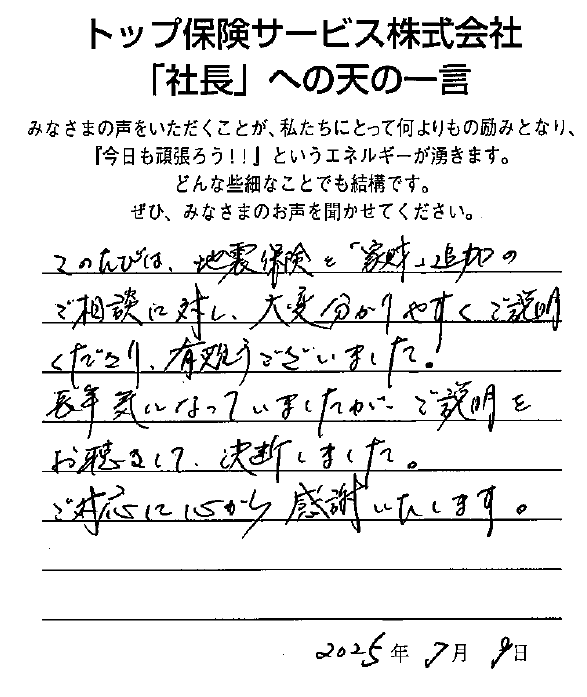 トップ保険サービス株式会社
「社長」への天の一言
みなさまの声をいただくことが、私たちにとって何よりもの励みとなり、
『今日も頑張ろう!!』というエネルギーが湧きます。
どんな些細なことでも結構です。
ぜひ、みなさまのお声を聞かせてください。
このたびは、地震保険と「家財」追加の
ご相談に対し、大変分かりやすくご説明
くださり、有難うございました。
長年気になっていましたがご説明を
お聴きして、決断しました。
ご対応に心から感謝いたします。
2025年7月9日